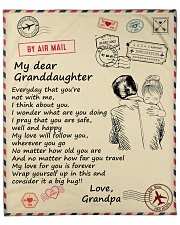 BY AIR MAIL
My dear
Granddaughter
Everyday that you're
not with me,
I think about you.
I wonder what are you doing
I pray that you are safe,
well and happy
My love will follow you,
wherever you go
No matter how old you are
And no matter how far you travel
My love for you is forever
Wrap yourself up in this and
consider it a big hug!!
Love,
Grandpa